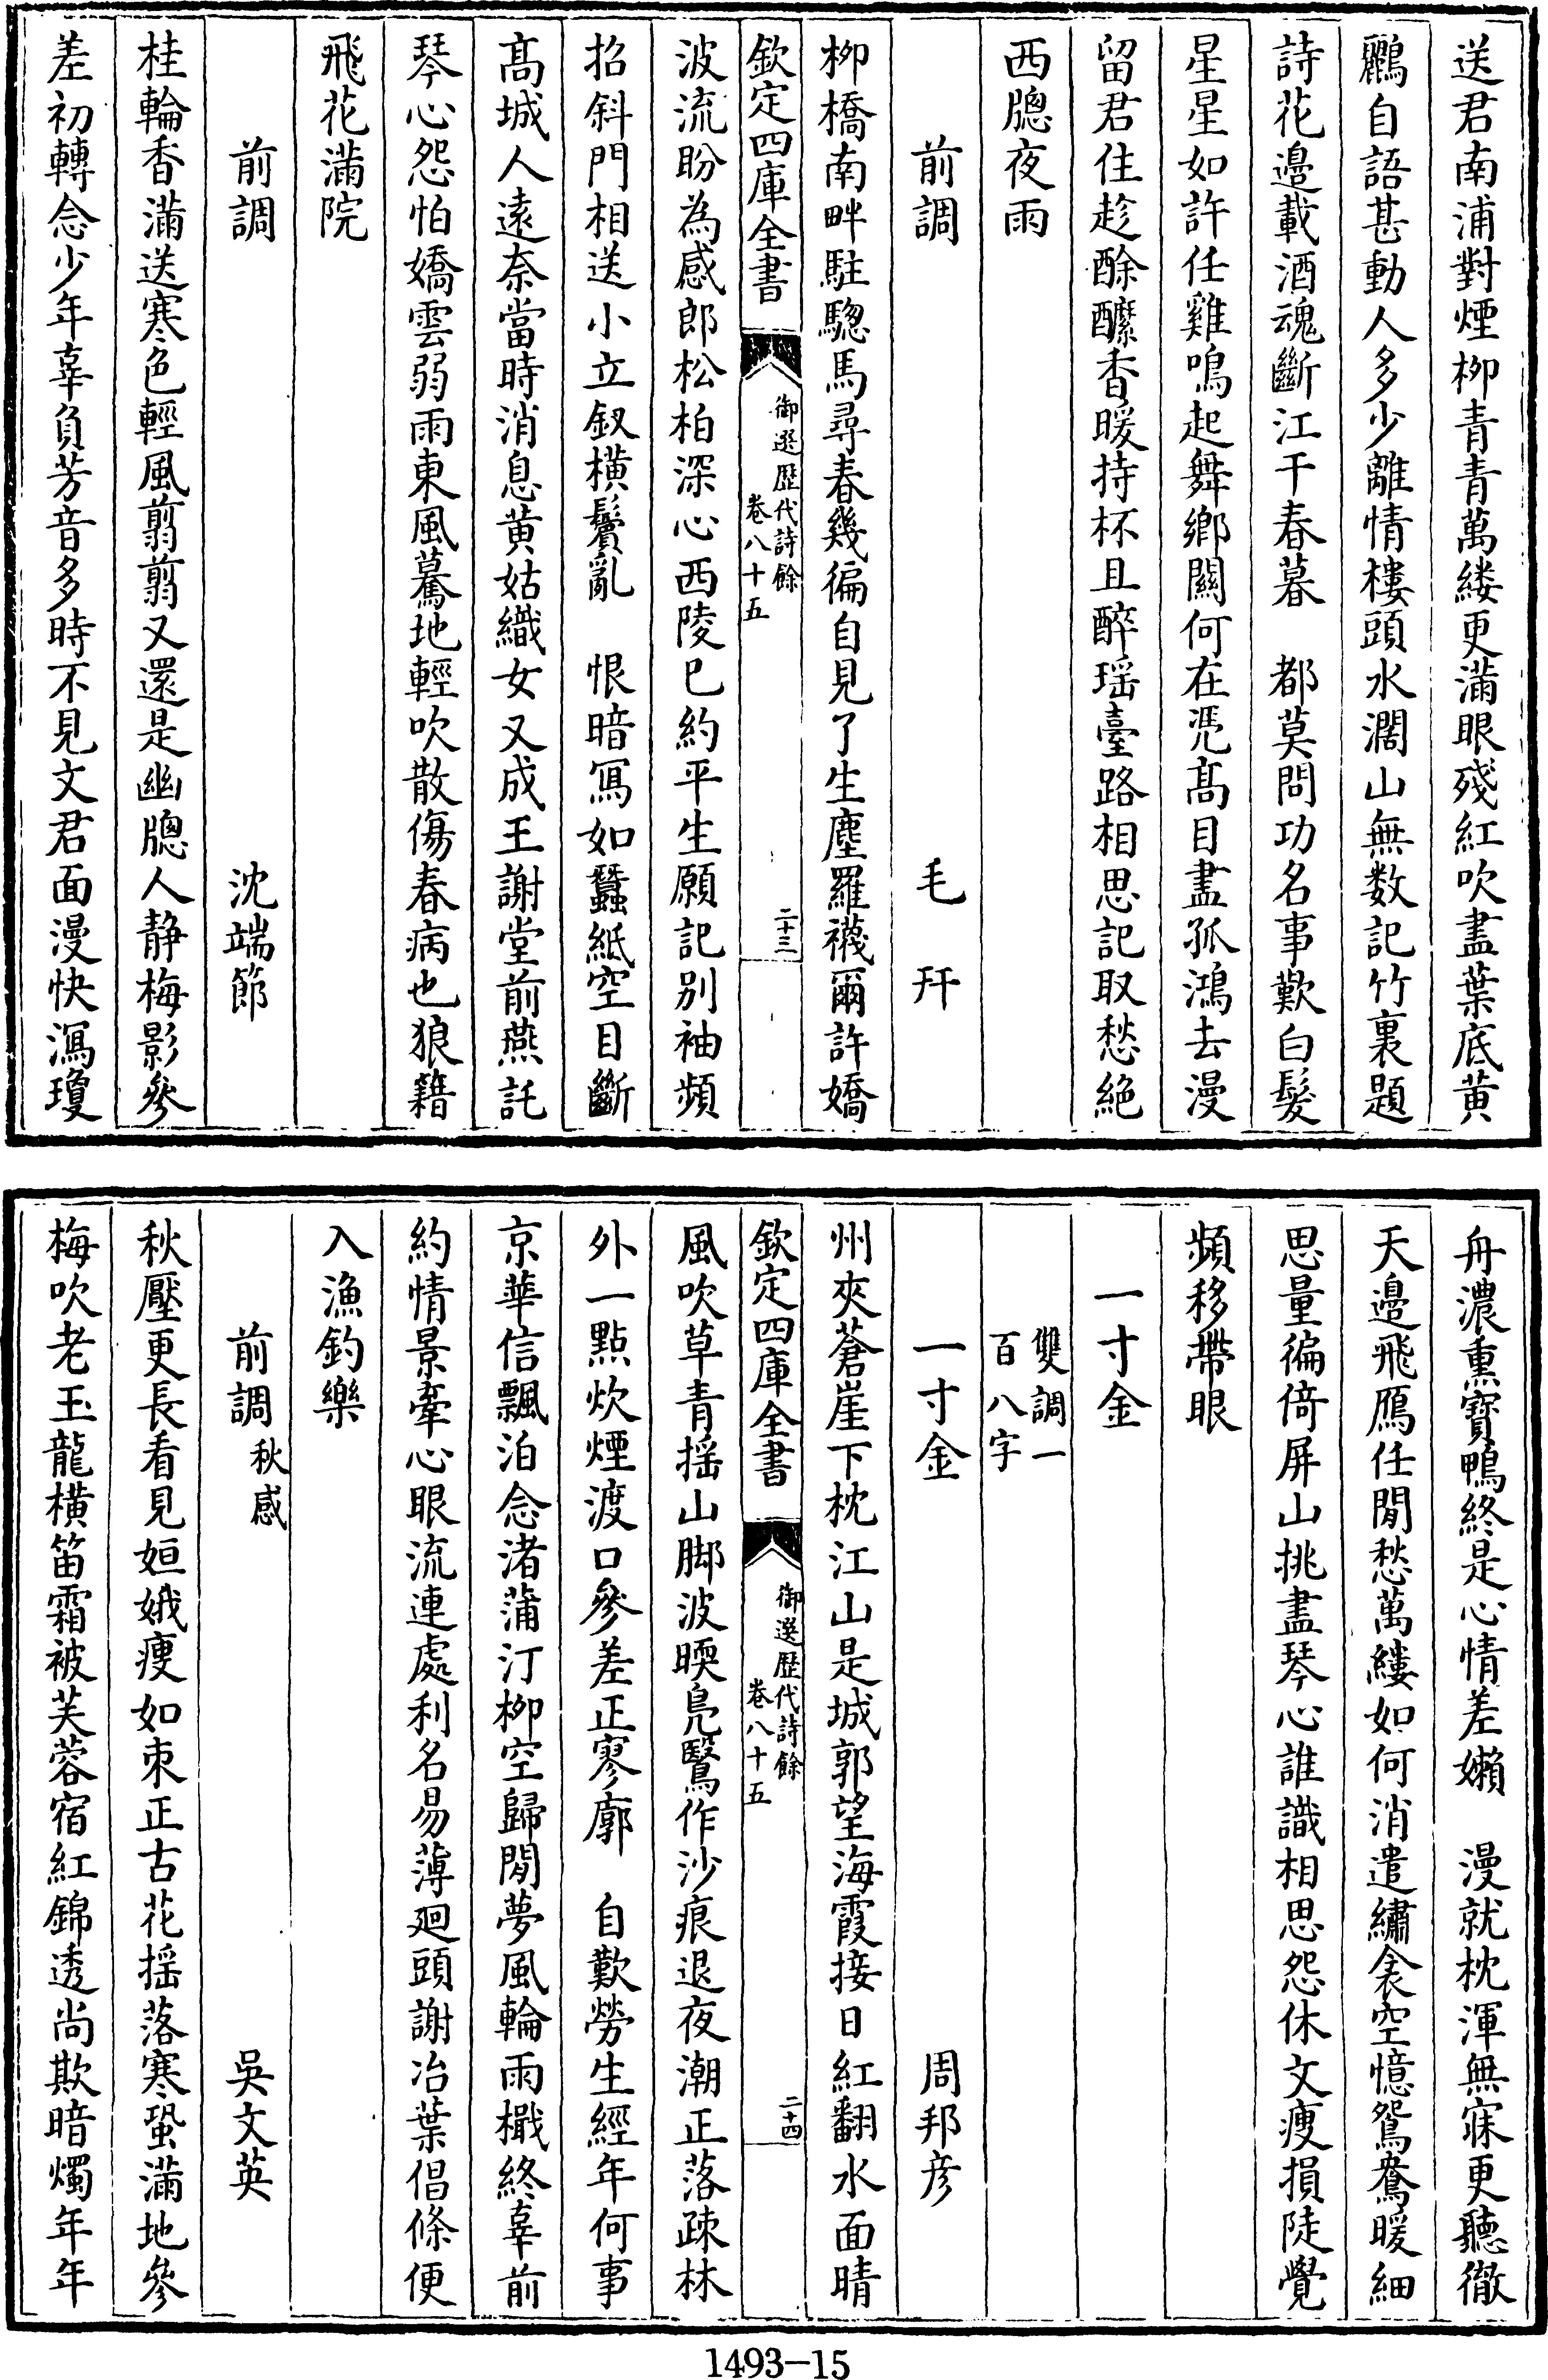 送君南浦對煙栁青青萬縷更滿眼殘紅吹盡葉底黄
鸝自語甚動人多少離情樓頭水濶山無数記竹裏題
詩花邉載酒魂斷江干春暮　都莫問功名事歎白髮
星星如許任雞鳴起舞鄉關何在凴髙目盡孤鴻去漫
留君住趁酴醿香暖持杯且醉瑶臺路相思記取愁絶
西牕夜雨
前調　毛幵
栁橋南畔駐驄馬尋春幾徧自見了生塵羅襪爾許嬌
欽定四庫全書　御選歴代詩餘　卷八十五　二十三
波流盼為感郎松柏深心西陵已約平生願記别袖頻
招斜門相送小立釵横鬢亂　恨暗寫如蠶紙空目斷
髙城人逺奈當時消息黄姑織女又成王謝堂前燕託
琴心怨怕嬌雲弱雨東風驀地輕吹散傷春病也狼籍
飛花滿院
前調　沈端節
桂輪香滿送寒色輕風翦翦又還是幽牕人静梅影參
差初轉念少年辜負芳音多時不見文君面漫快瀉瓊
舟濃熏寳鴨終是心情差嬾　漫就枕渾無寐更聽徹
天邉飛鴈任閒愁萬縷如何消遣繡衾空憶鴛鴦暖細
思量徧倚屏山挑盡琴心誰識相思怨休文瘦損陡覺
頻移帶眼
一寸金
雙調一
百八字
一寸金　周邦彦
州夾蒼崖下枕江山是城郭望海霞接日紅翻水面晴
欽定四庫全書　御選歴代詩餘　卷八十五　二十四
風吹草青揺山脚波暎鳬鷖作沙痕退夜潮正落疎林
外一㸃炊煙渡口參差正寥廓　自歎勞生經年何事
京華信飄泊念渚蒲汀栁空歸閒夢風輪雨檝終辜前
約情景牽心眼流連處利名易薄廻頭謝冶葉倡條便
入漁釣樂
前調秋感　吳文英
秋壓更長看見姮娥瘦如朿正古花揺落寒蛩滿地參
梅吹老玉龍横笛霜被芙蓉宿紅錦透尚欺暗燭年年
1493-15